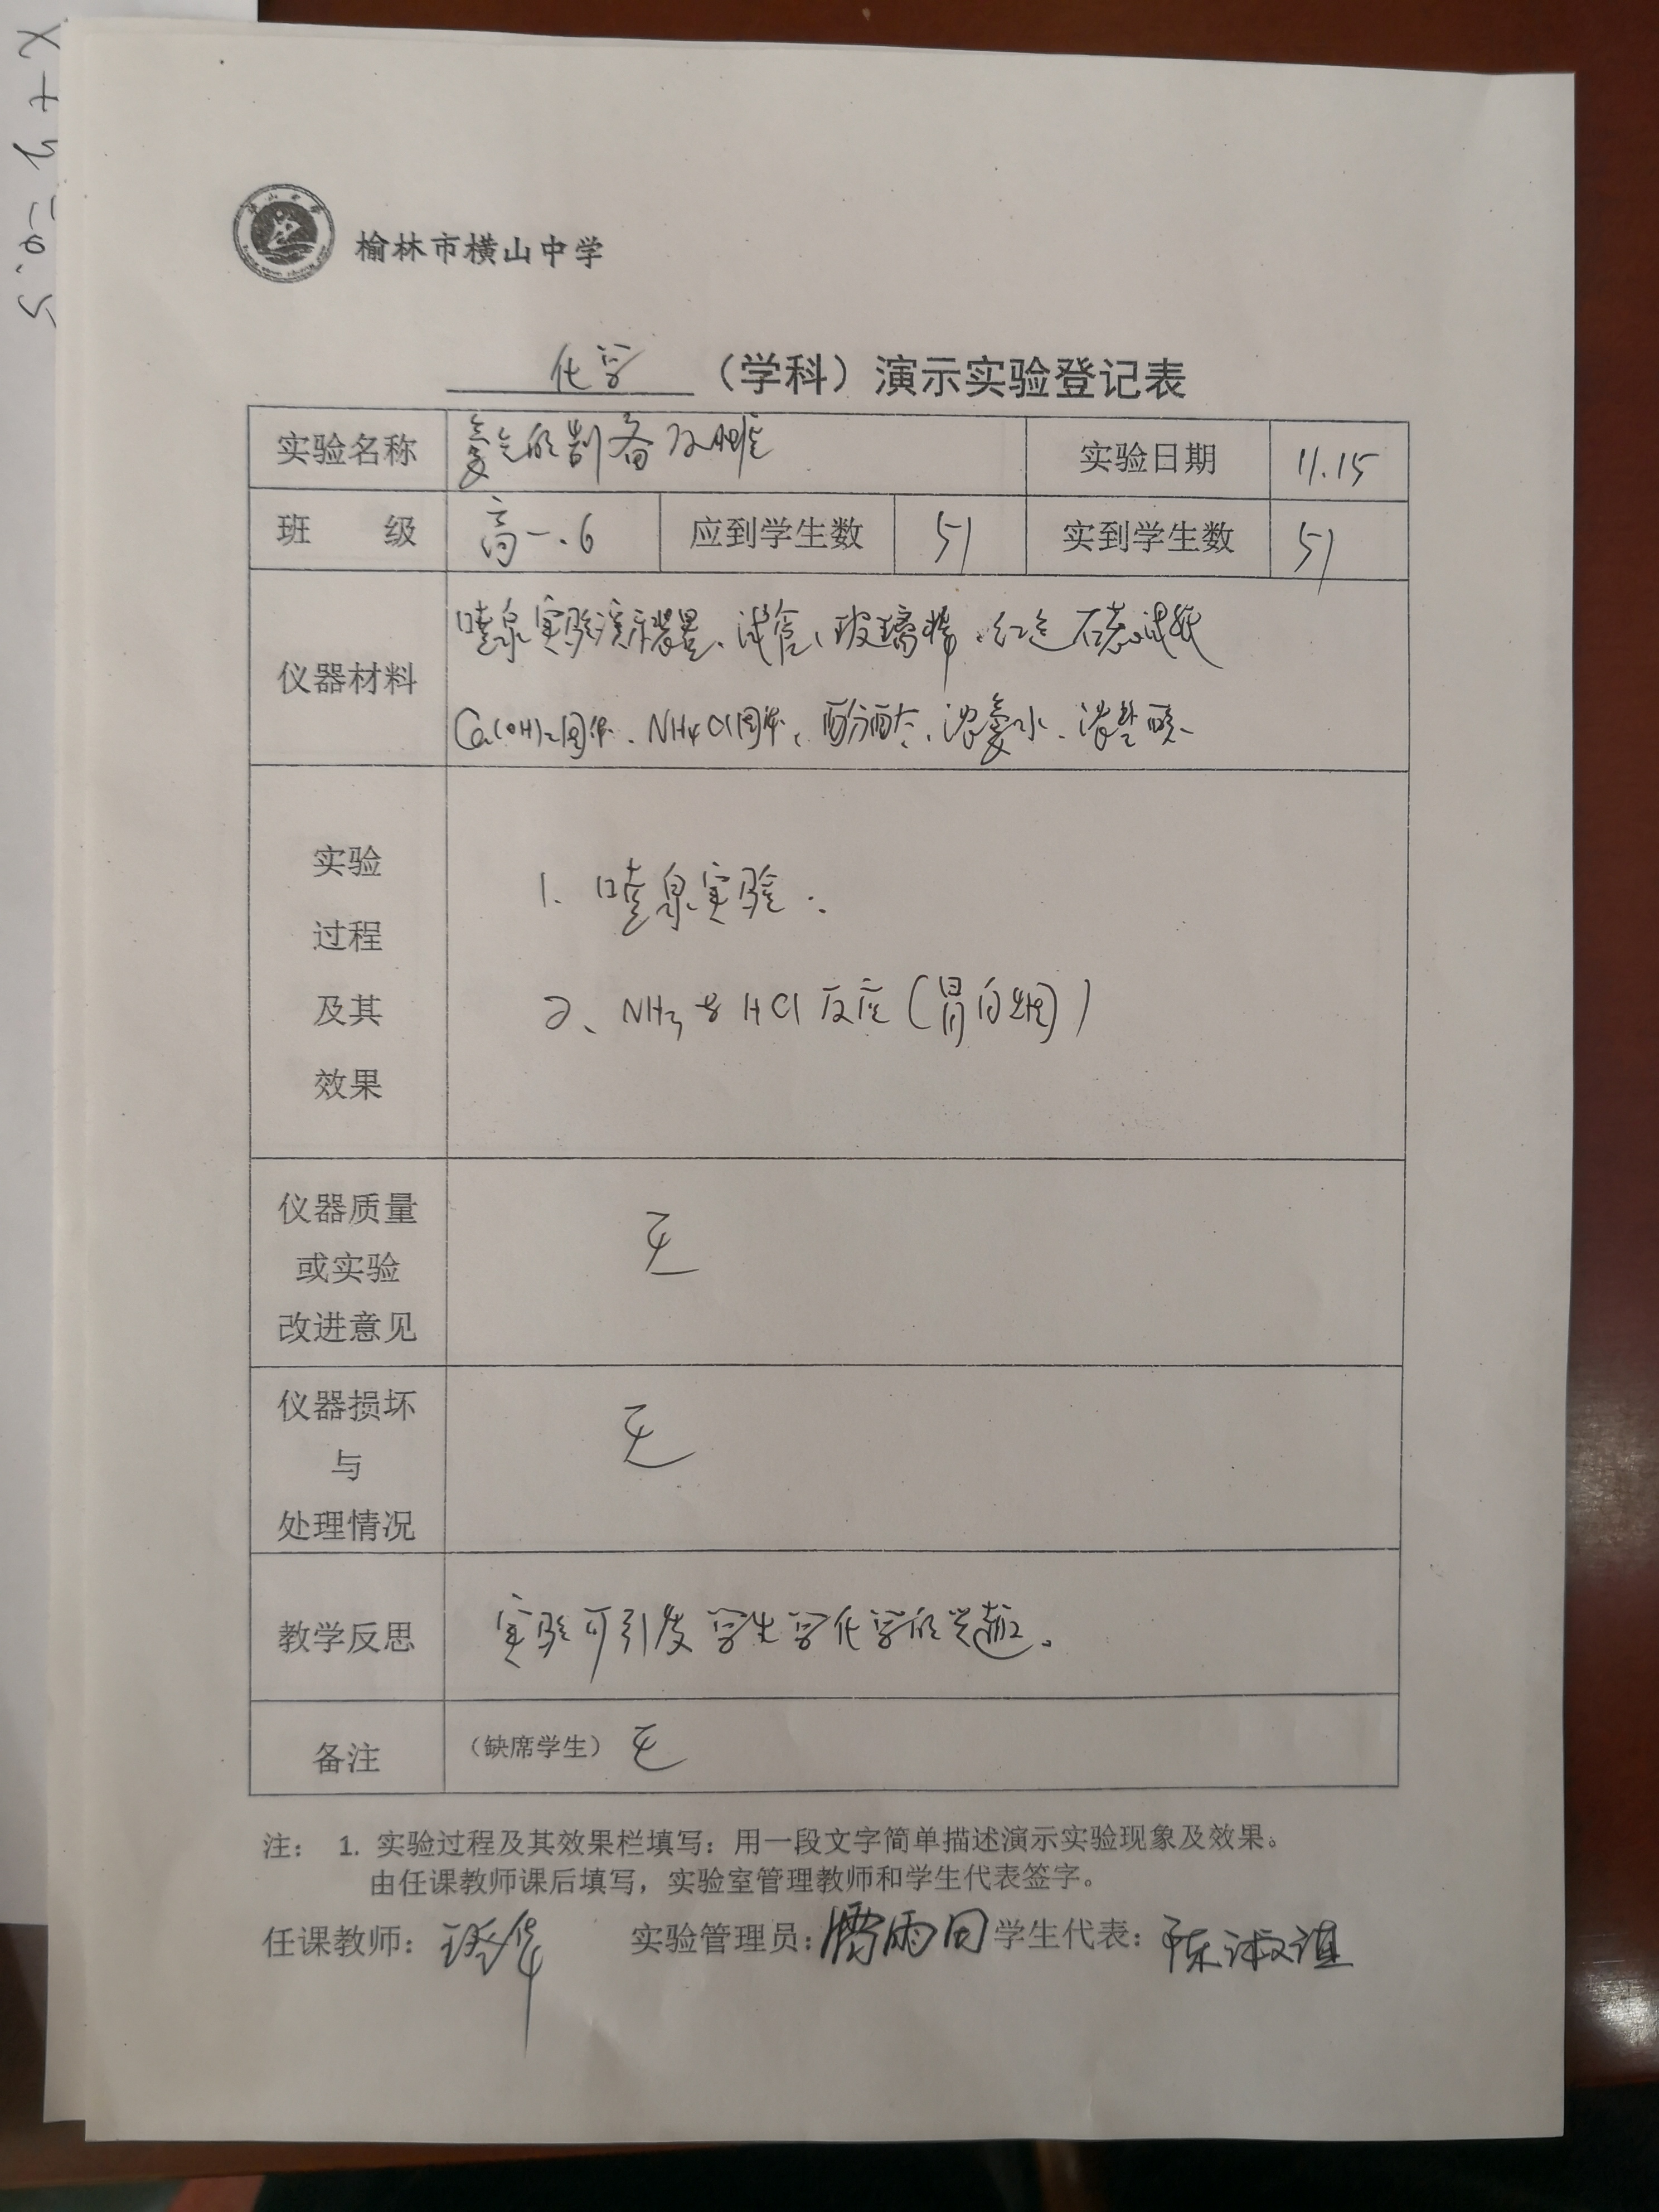 榆林市横山中学
化学（学科）演示实验登记表
实验名称 氨气的制备及性质 实验日期 11.15
班 级 高一.6 应到学生数 51 实到学生数 51
仪器材料
喷泉实验演示装置、试管、玻璃棒、红色石蕊试纸
Ca(OH)2固体、NH4Cl固体、酚酞、浓氨水、浓盐酸
实验
过程
及其
效果
1、喷泉实验.
2、NH3与HCl反应（冒白烟）
仪器质量
或实验
改进意见
无
仪器损坏
与
处理情况
无
教学反思 实验可引发学生学化学的兴趣。
备注 （缺席学生） 无
注： 1. 实验过程及其效果栏填写：用一段文字简单描述演示实验现象及效果。
由任课教师课后填写，实验室管理教师和学生代表签字。
任课教师： 实验管理员： 雨田 学生代表： 陈淑谊
x+y=0.5